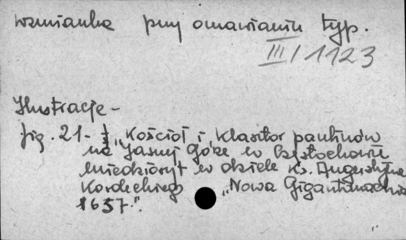 wzmianka przy omawianiu typ.
III/1123
Ilustracje -
fig. 21 - "Kościół i klasztor paulinów
na Jasnej Górze w Częstochowie
miedzioryt w dziele ks. Augustyna
Kordeckiego "Nowa Gigantomachia
1657".